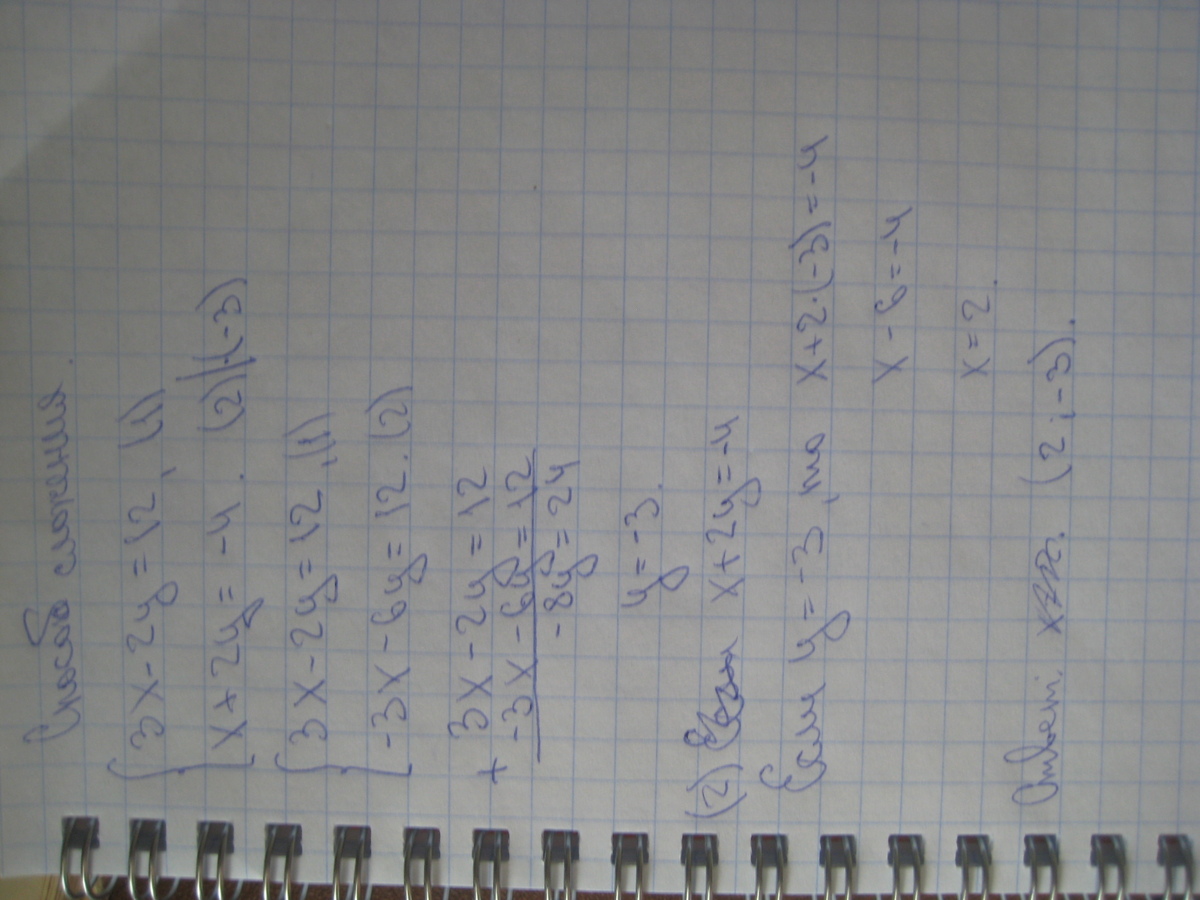 Способ сложения.
3x-2y=12, (1)
x+2y=-4. (2) |·(-3)
3x-2y=12, (1)
-3x-6y=12. (2)
+ 3x-2y=12
-3x-6y=12
-8y=24
y=-3.
(2) x+2y=-4
Если y=-3, то x+2·(-3)=-4
x-6=-4
x=2.
Ответ: (2;-3).